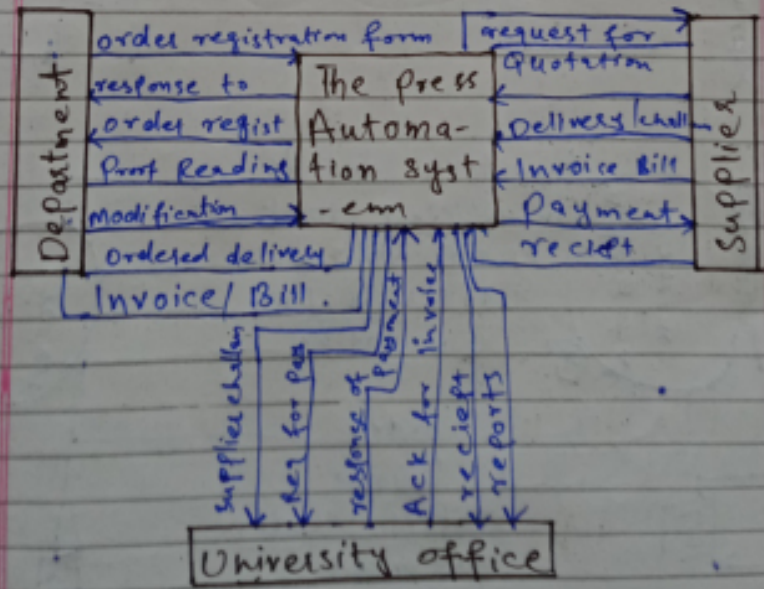 Department
order registration form
response to
order regist
Proof Reading
modification
ordered delivery
Invoice/ Bill.
The press
Automa-
tion syst
-em
request for
Quotation
Delivery/chall
Invoice Bill
Payment
reciept
Supplier
supplier challan
Req for pay
response of
payment
Ack for invoice
reciept
reports
University office